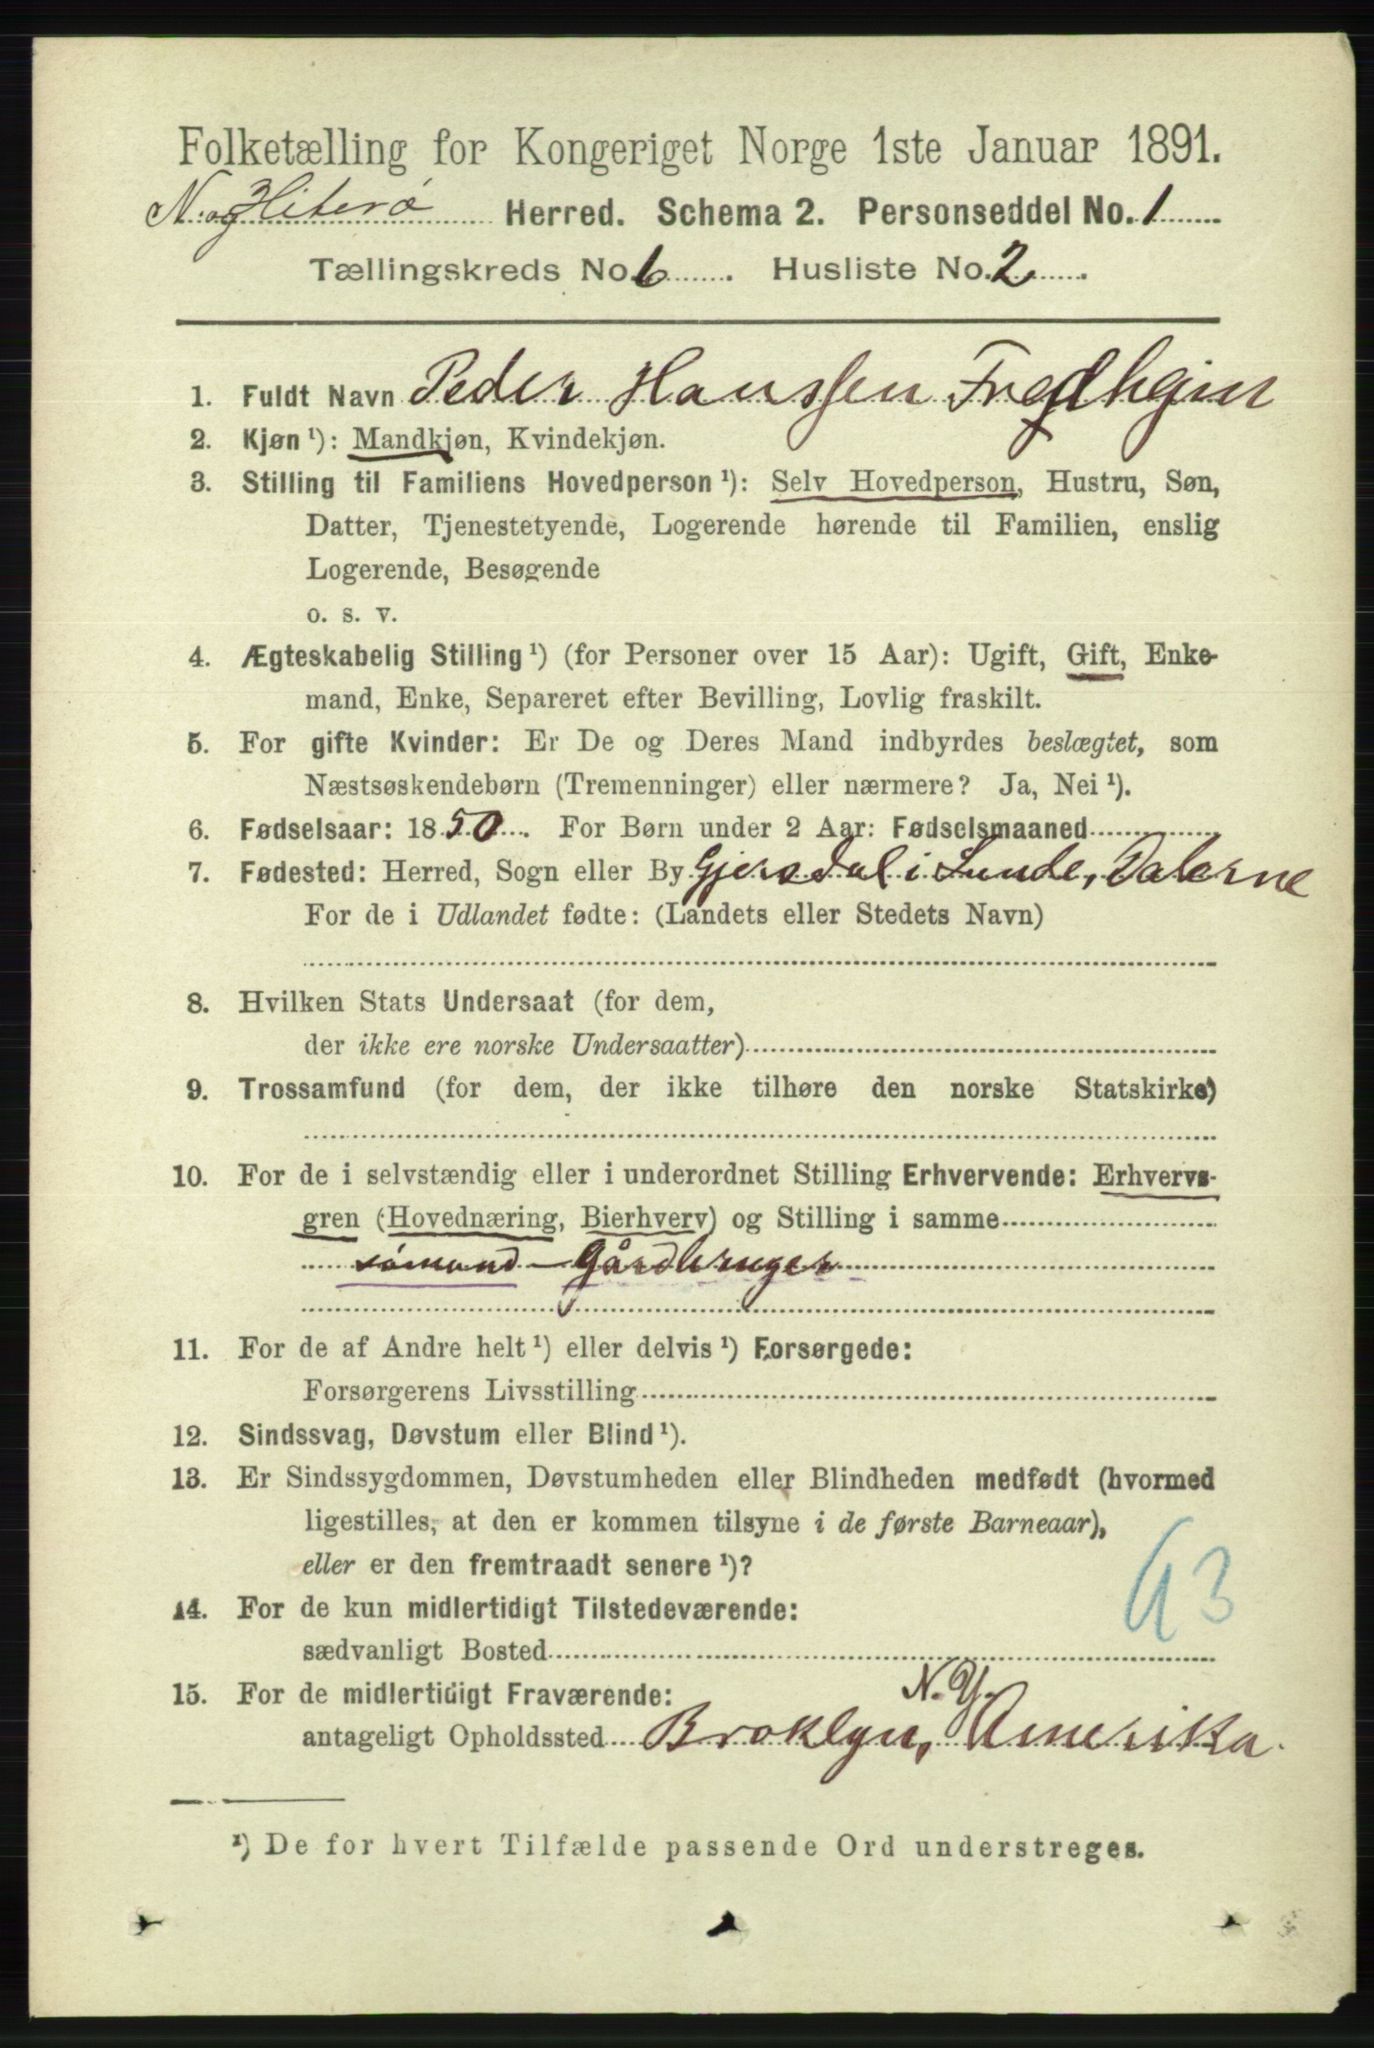 Folketælling for Kongeriget Norge 1ste Januar 1891.
N. og Hiterø Herred. Schema 2. Personseddel No. 1
Tællingskreds No. 6. Husliste No. 2
1. Fuldt Navn Peder Hanssen Fredheim
2. Kjøn ¹): Mandkjøn, Kvindekjøn.
3. Stilling til Familiens Hovedperson ¹): Selv Hovedperson, Hustru, Søn,
Datter, Tjenestetyende, Logerende hørende til Familien, enslig
Logerende, Besøgende
o. s. v.
4. Ægteskabelig Stilling ¹) (for Personer over 15 Aar): Ugift, Gift, Enke-
mand, Enke, Separeret efter Bevilling, Lovlig fraskilt.
5. For gifte Kvinder: Er De og Deres Mand indbyrdes beslægtet, som
Næstsøskendebørn (Tremenninger) eller nærmere? Ja, Nei ¹).
6. Fødselsaar: 1850. For Børn under 2 Aar: Fødselsmaaned
7. Fødested: Herred, Sogn eller By Gjersdal i Lunde, Dalerne
For de i Udlandet fødte: (Landets eller Stedets Navn)
8. Hvilken Stats Undersaat (for dem,
der ikke ere norske Undersaatter)
9. Trossamfund (for dem, der ikke tilhøre den norske Statskirke)
10. For de i selvstændig eller i underordnet Stilling Erhvervende: Erhvervs-
gren (Hovednæring, Bierhverv) og Stilling i samme
sømand - Gårdbruger
11. For de af Andre helt ¹) eller delvis ¹) Forsørgede:
Forsørgerens Livsstilling
12. Sindssvag, Døvstum eller Blind ¹).
13. Er Sindssygdommen, Døvstumheden eller Blindheden medfødt (hvormed
ligestilles, at den er kommen tilsyne i de første Barneaar),
eller er den fremtraadt senere ¹)?
14. For de kun midlertidigt Tilstedeværende:
sædvanligt Bosted
63
15. For de midlertidigt Fraværende:
N. Y.
antageligt Opholdssted Broklyn, Amerika.
¹) De for hvert Tilfælde passende Ord understreges.